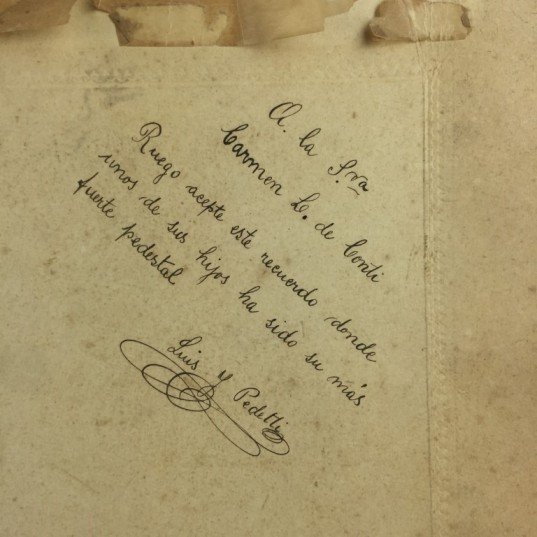 A. la S.ra
Carmen L. de Conti
Ruego acepte este recuerdo donde
unos de sus hijos ha sido su más
fuerte pedestal
Luis Y Pedetti